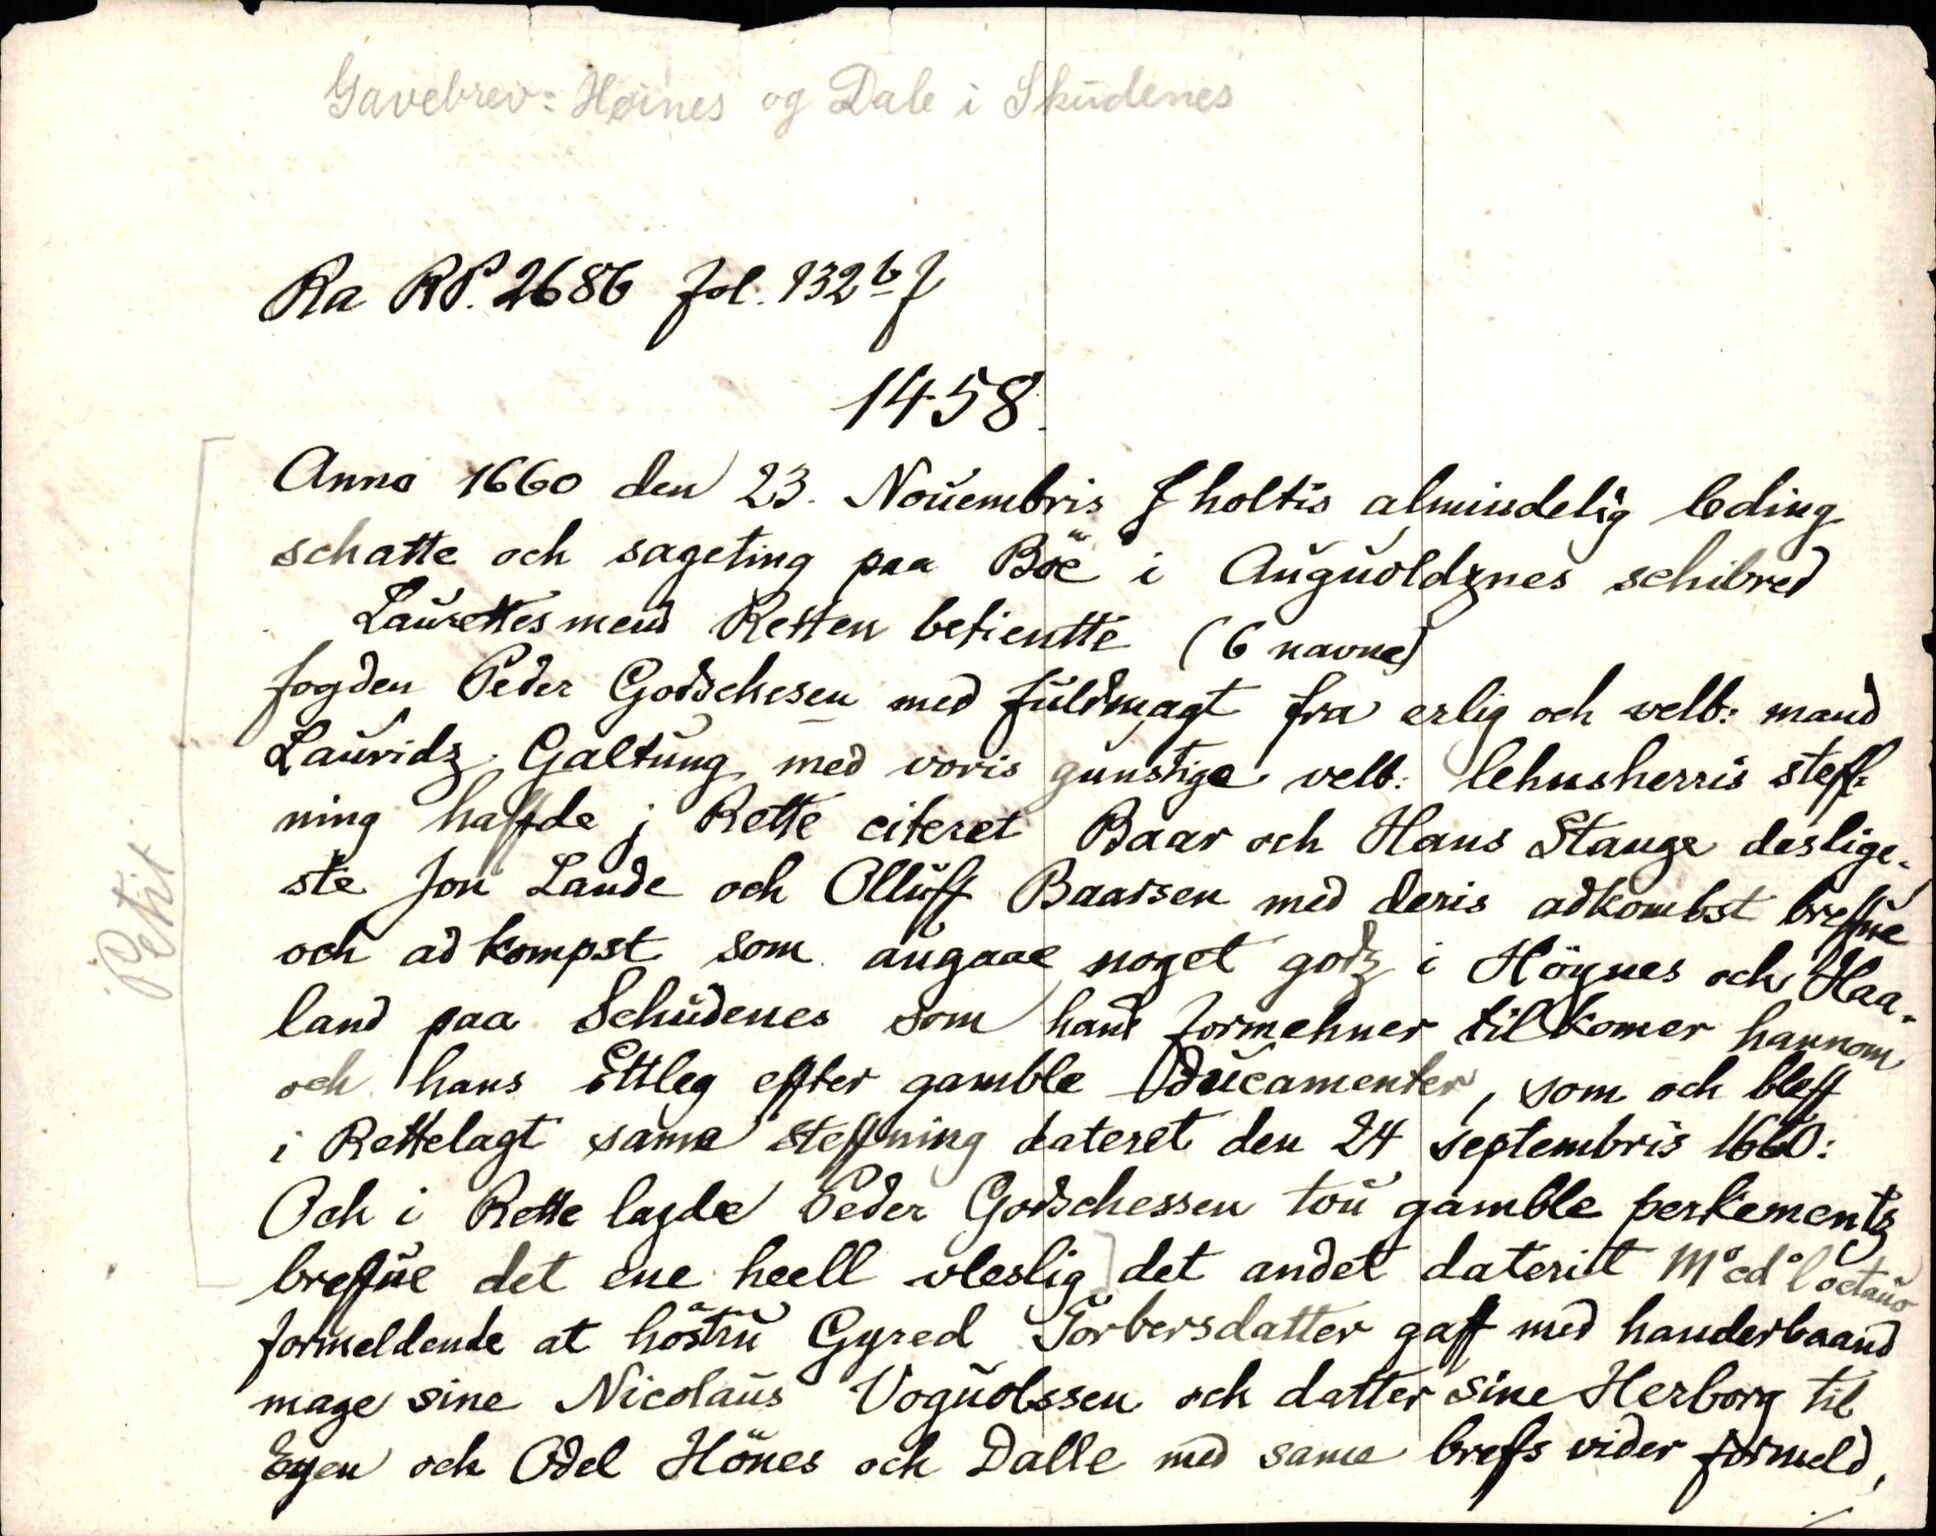 Gavebrev: Høines og Dale i Skudenes
Ra RP. 2686 fol. 132 b f
1458.
Anno 1660 den 23. Nouembris J holtis almindelig leding
schatte och sageting paa Böe i Auguoldznes schibred
Laurettesmend Retten betientte (6 navne)
fogden Peder Godschesen med fuldmagt fra erlig och velb: mand
Lauridz Galtung med voris gunstige velb: lehnsherris steff-
ning haffde j Rette citeret Baar och Hans Stange deslige-
ste Jon Lande och Olluff Baarsen med deris adkombst breffue
och adkompst som angaae noget godz i Höynes och Haa-
land paa Schudenes som hand formehner tilkomer hannom
och hans Ettleg effter gamble Ducamenter, som och bleff
i Rettelagt same steffning dateret den 24 septembris 1660:
Och i Rette lagde Peder Godschessen tou gamble perkements
breffue det ene heell vleslig] det andet daterit M°cd°l octauo
formeldende at höstru Gyred Torbersdatter gaff med handerbaand
mage sine Nicolaus Voguolssen och datter sine Herborg til
Egen och Odel Hönes och Dalle med same brefs vider formeld,
Petit